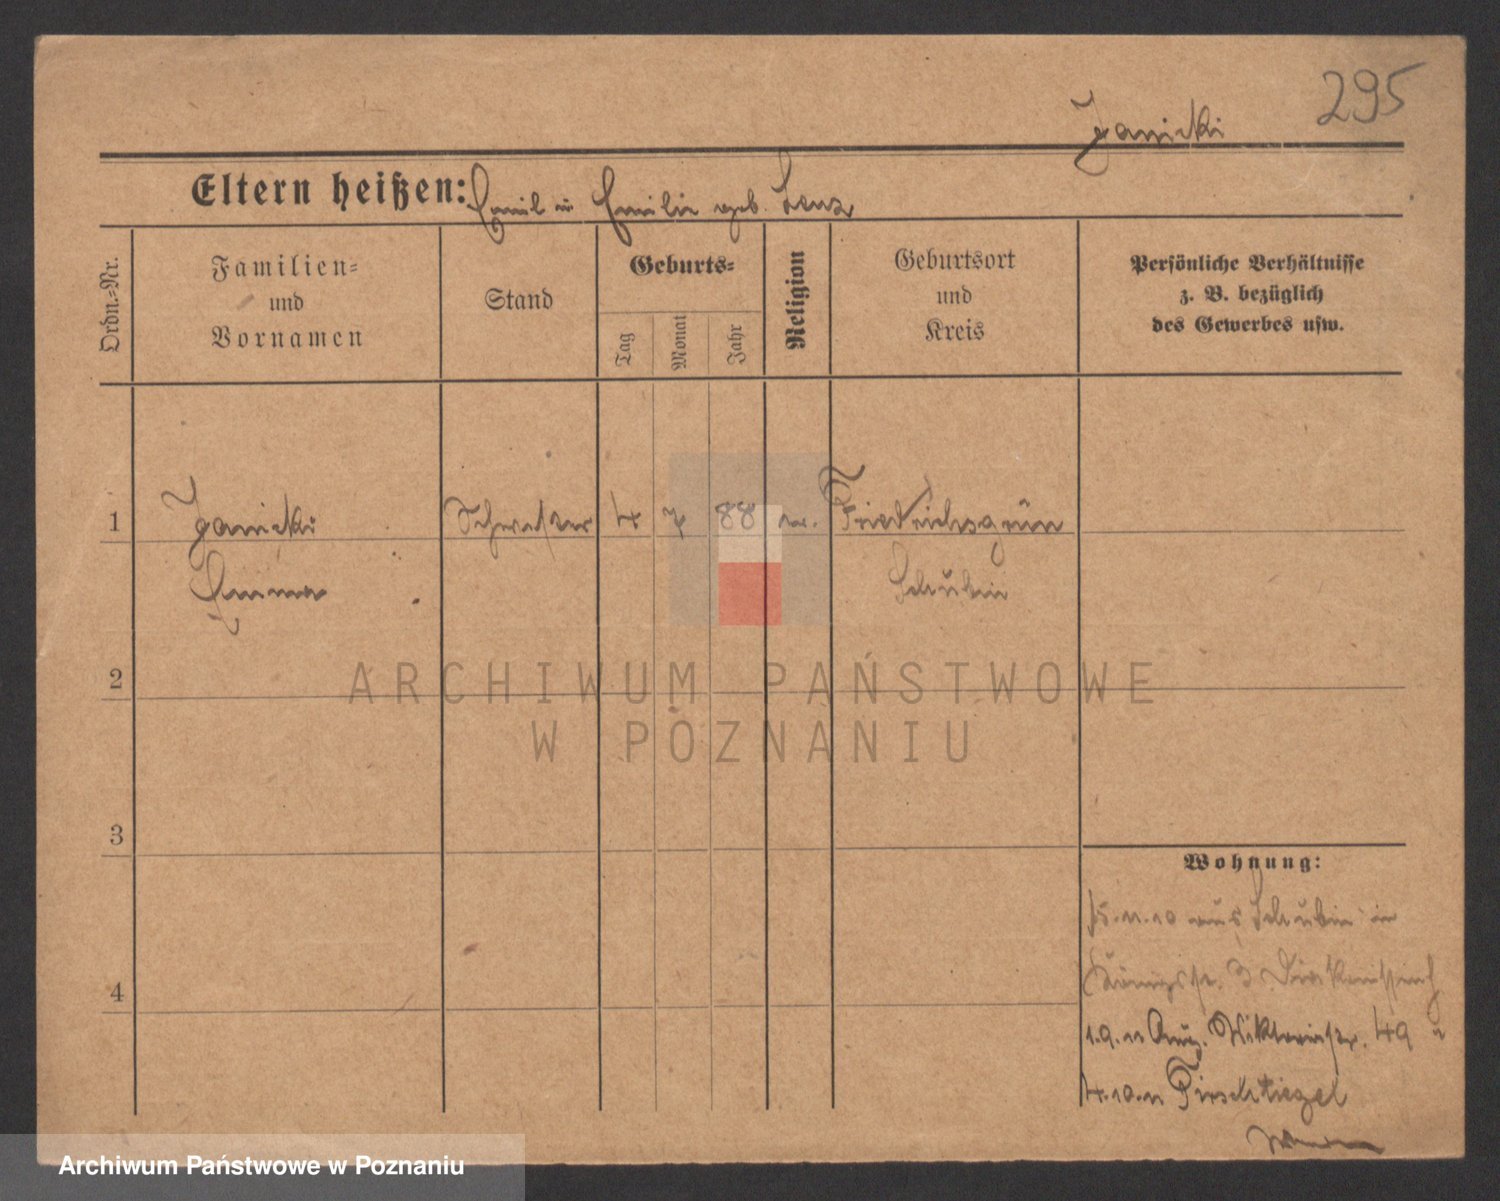 295
Janicki
Eltern heißen: Emil u Emilie geb. Lenz
Ordn.-Nr.
Familien- und Vornamen
Stand
Geburts-
Tag
Monat
Jahr
Religion
Geburtsort und Kreis
Persönliche Verhältnisse
z. B. bezüglich
des Gewerbes usw.
1 Janicki Schwester 4 7 88 ev. Friedrichsgrün
Emma Schubin
2
ARCHIWUM PAŃSTWOWE
W POZNANIU
3
Wohnung:
15.11.10 aus Schubin in
Königstr. 3 Diakonissenh
4
1.9.11 Aug. Viktoriastr. 49 u
4.10.11 Tirschtiegel
Archiwum Państwowe w Poznaniu